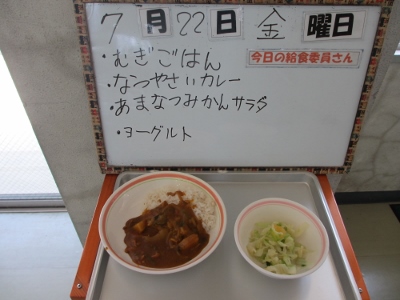 7月22日 金曜日
今日の給食委員さん
・むぎごはん
・なつやさいカレー
・あまなつみかんサラダ
・ヨーグルト